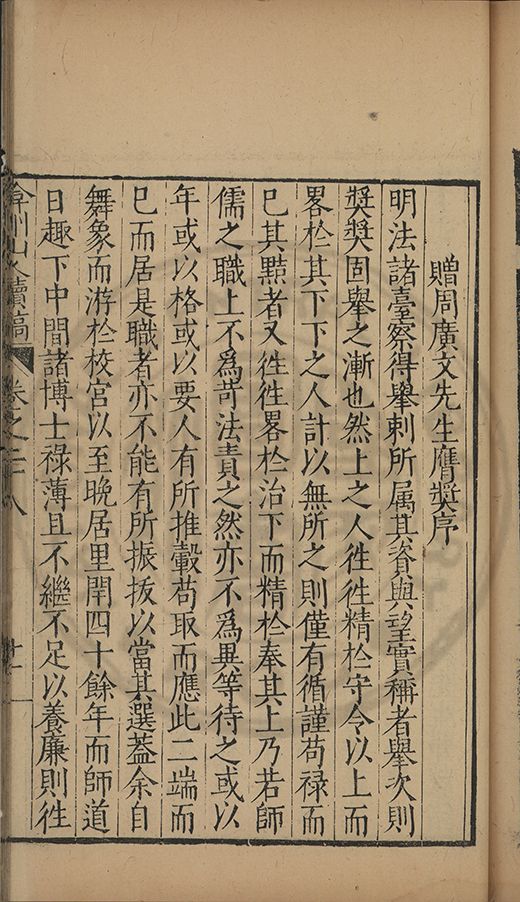 贈周廣文先生膺奬序
明法諸臺察得舉刺所属其資與望實稱者舉次則
奬奬固舉之漸也然上之人徃徃精於守令以上而
畧於其下下之人計以無所之則僅有循謹苟禄而
已其黠者又徃徃畧於治下而精於奉其上乃若師
儒之職上不爲苛法責之然亦不爲異等待之或以
年或以格或以要人有所推轂苟取而應此二端而
已而居是職者亦不能有所振拔以當其選葢余自
舞象而游於校官以至晚居里閈四十餘年而師道
日趣下中間諸博士禄薄且不繼不足以養廉則徃
弇州山人續稿
卷之二十八
廿一